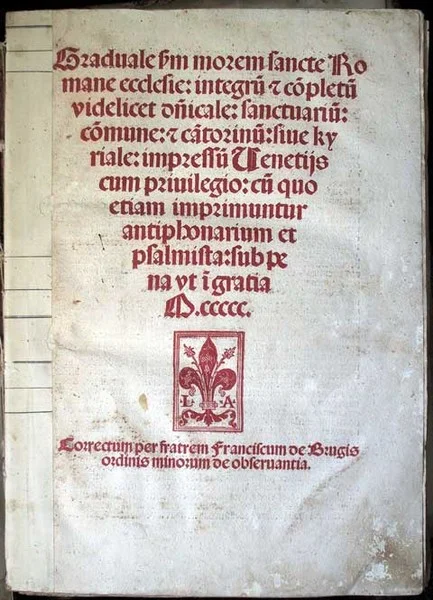 Graduale ẜm morem sancte Ro
mane ecclesie: integrũ ⁊ cõpletũ
videlicet dñicale: sanctuariũ:
cõmune: ⁊ cãtorinũ: siue ky
riale: impressũ Uenetijs
cum priuilegio: cũ quo
etiam imprimuntur
antiphonarium et
psalmista: sub pe
na vt ĩ gratia
M.ccccc.
·L· A·
Correctum per fratrem Franciscum de Brugis
ordinis minorum de obseruantia.